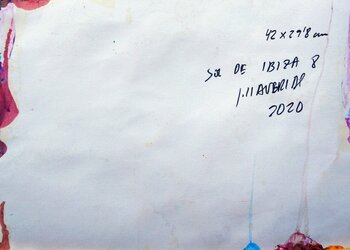 42 x 29'8 cm
SOL DE IBIZA 8
2020